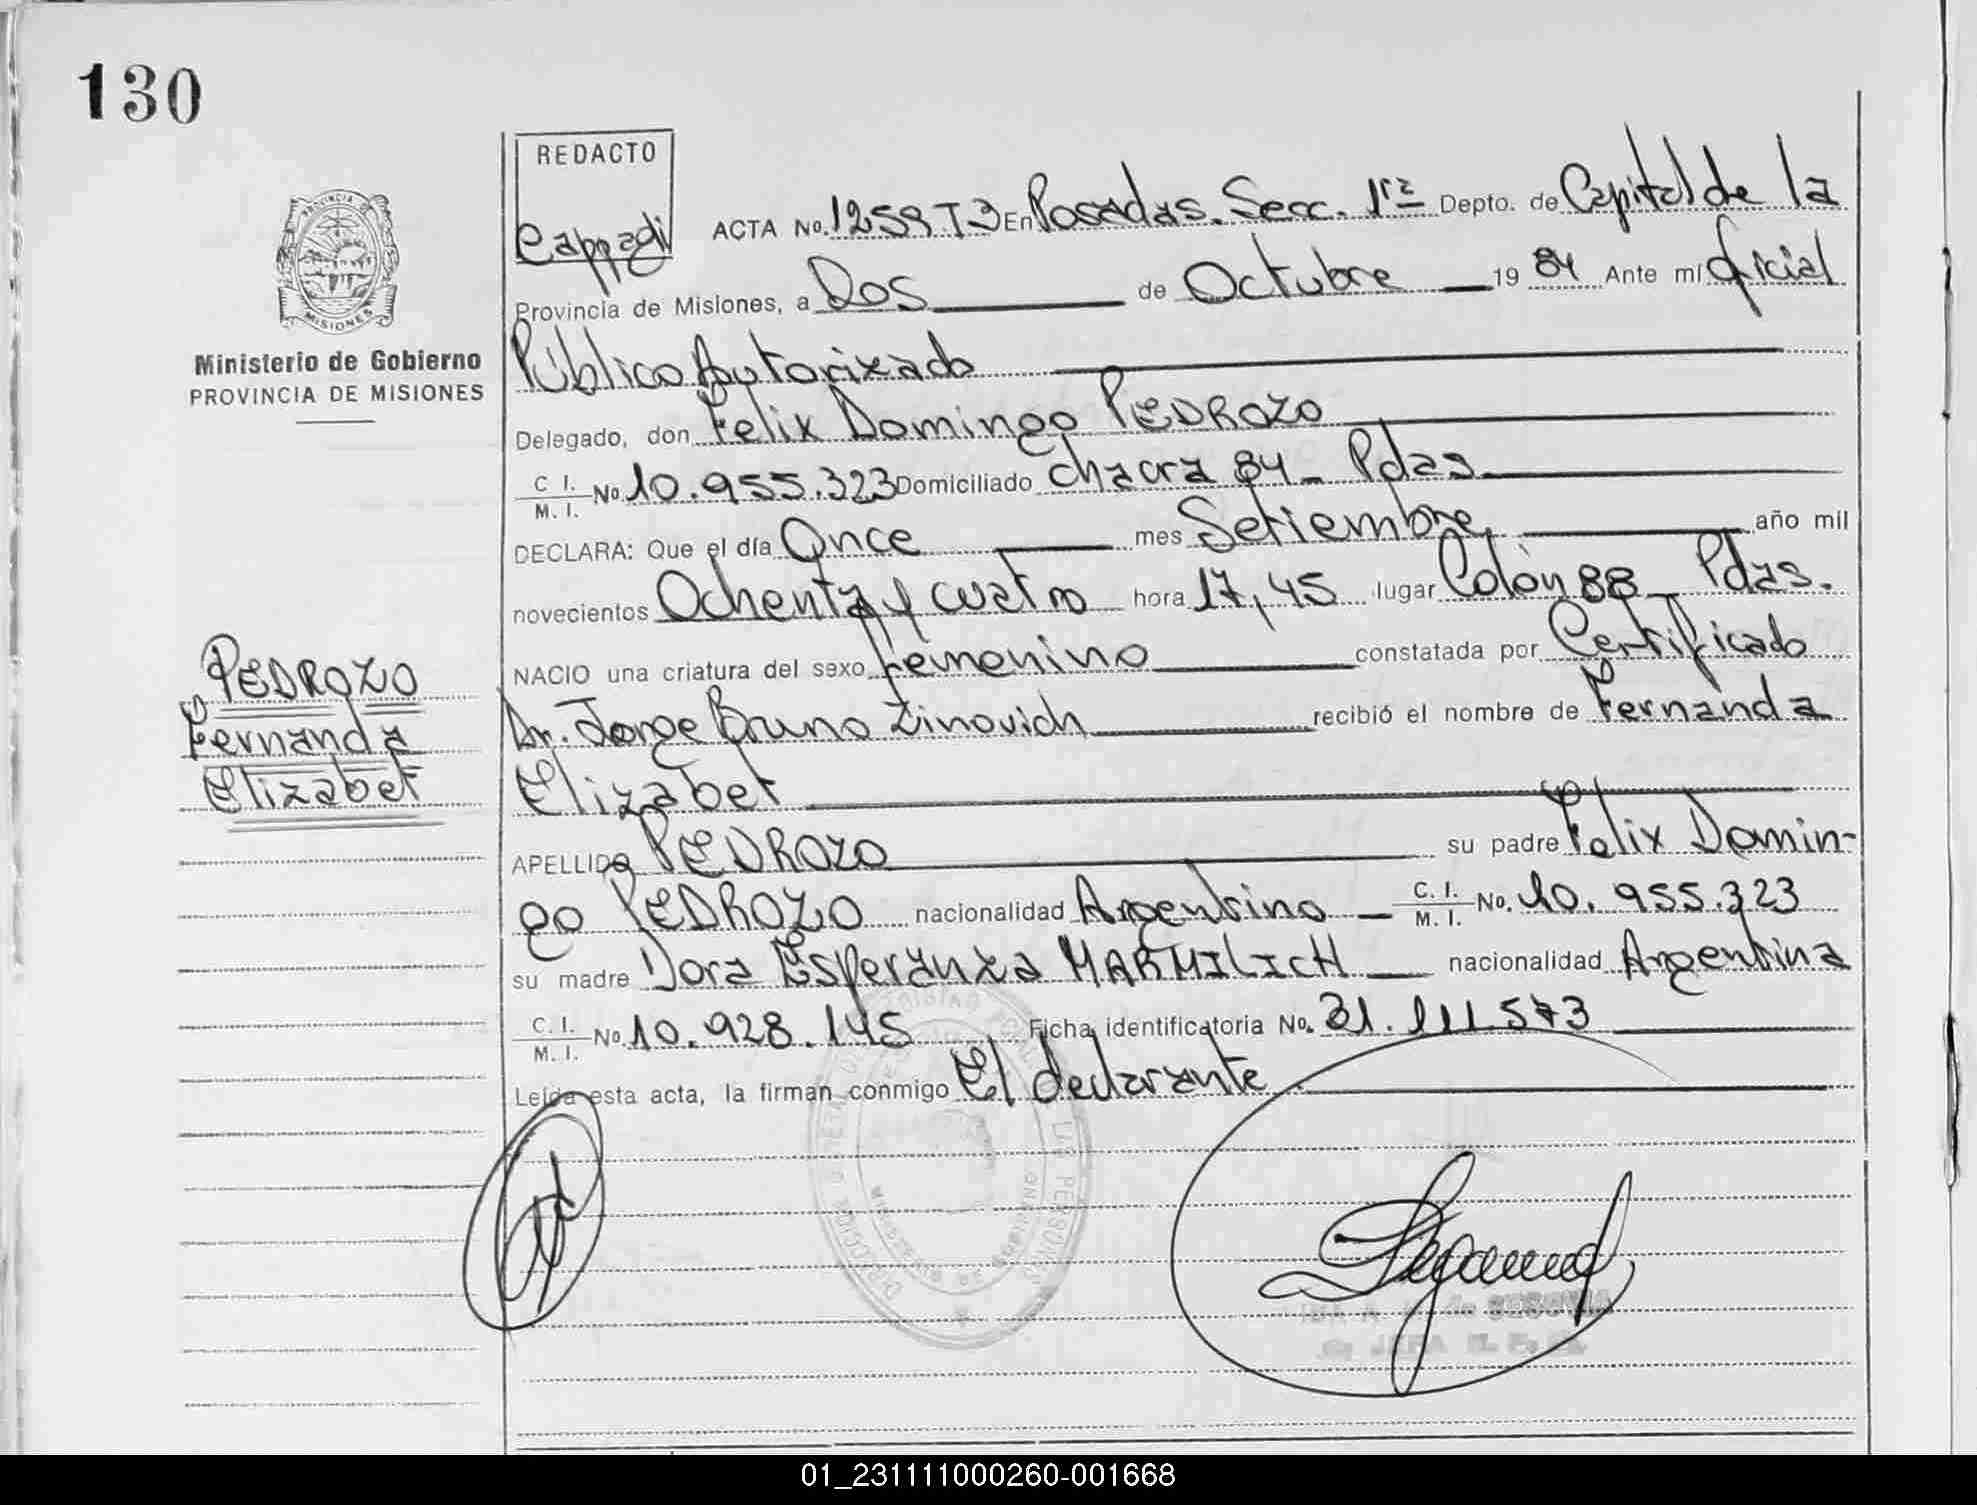 130
REDACTO
Cappagli
PROVINCIA DE
MISIONES
Ministerio de Gobierno
PROVINCIA DE MISIONES
ACTA No. 1259 T3 En Posadas. Secc. 1ra Depto. de Capital de la
Provincia de Misiones, a Dos de Octubre 19 84 Ante mí Oficial
Público Autorizado
Delegado, don Felix Domingo PEDROZO
C. I. / M. I. No 10.955.323 Domiciliado Chacra 84 - Pdas.
DECLARA: Que el día Once mes Setiembre año mil
novecientos Ochenta y cuatro hora 17,45 lugar Colón 88 - Pdas.
NACIO una criatura del sexo Femenino constatada por Certificado
Dr. Jorge Bruno Zinovich recibió el nombre de Fernanda
Elizabet
APELLIDO PEDROZO su padre Felix Domin-
go PEDROZO nacionalidad Argentino - C. I. / M. I. No. 10.955.323
su madre Dora Esperanza MARMILICH nacionalidad Argentina
C. I. / M. I. No 10.928.145 Ficha identificatoria No. 31.111.573
Leída esta acta, la firman conmigo El declarante
PEDROZO
Fernanda
Elizabet
01_231111000260-001668